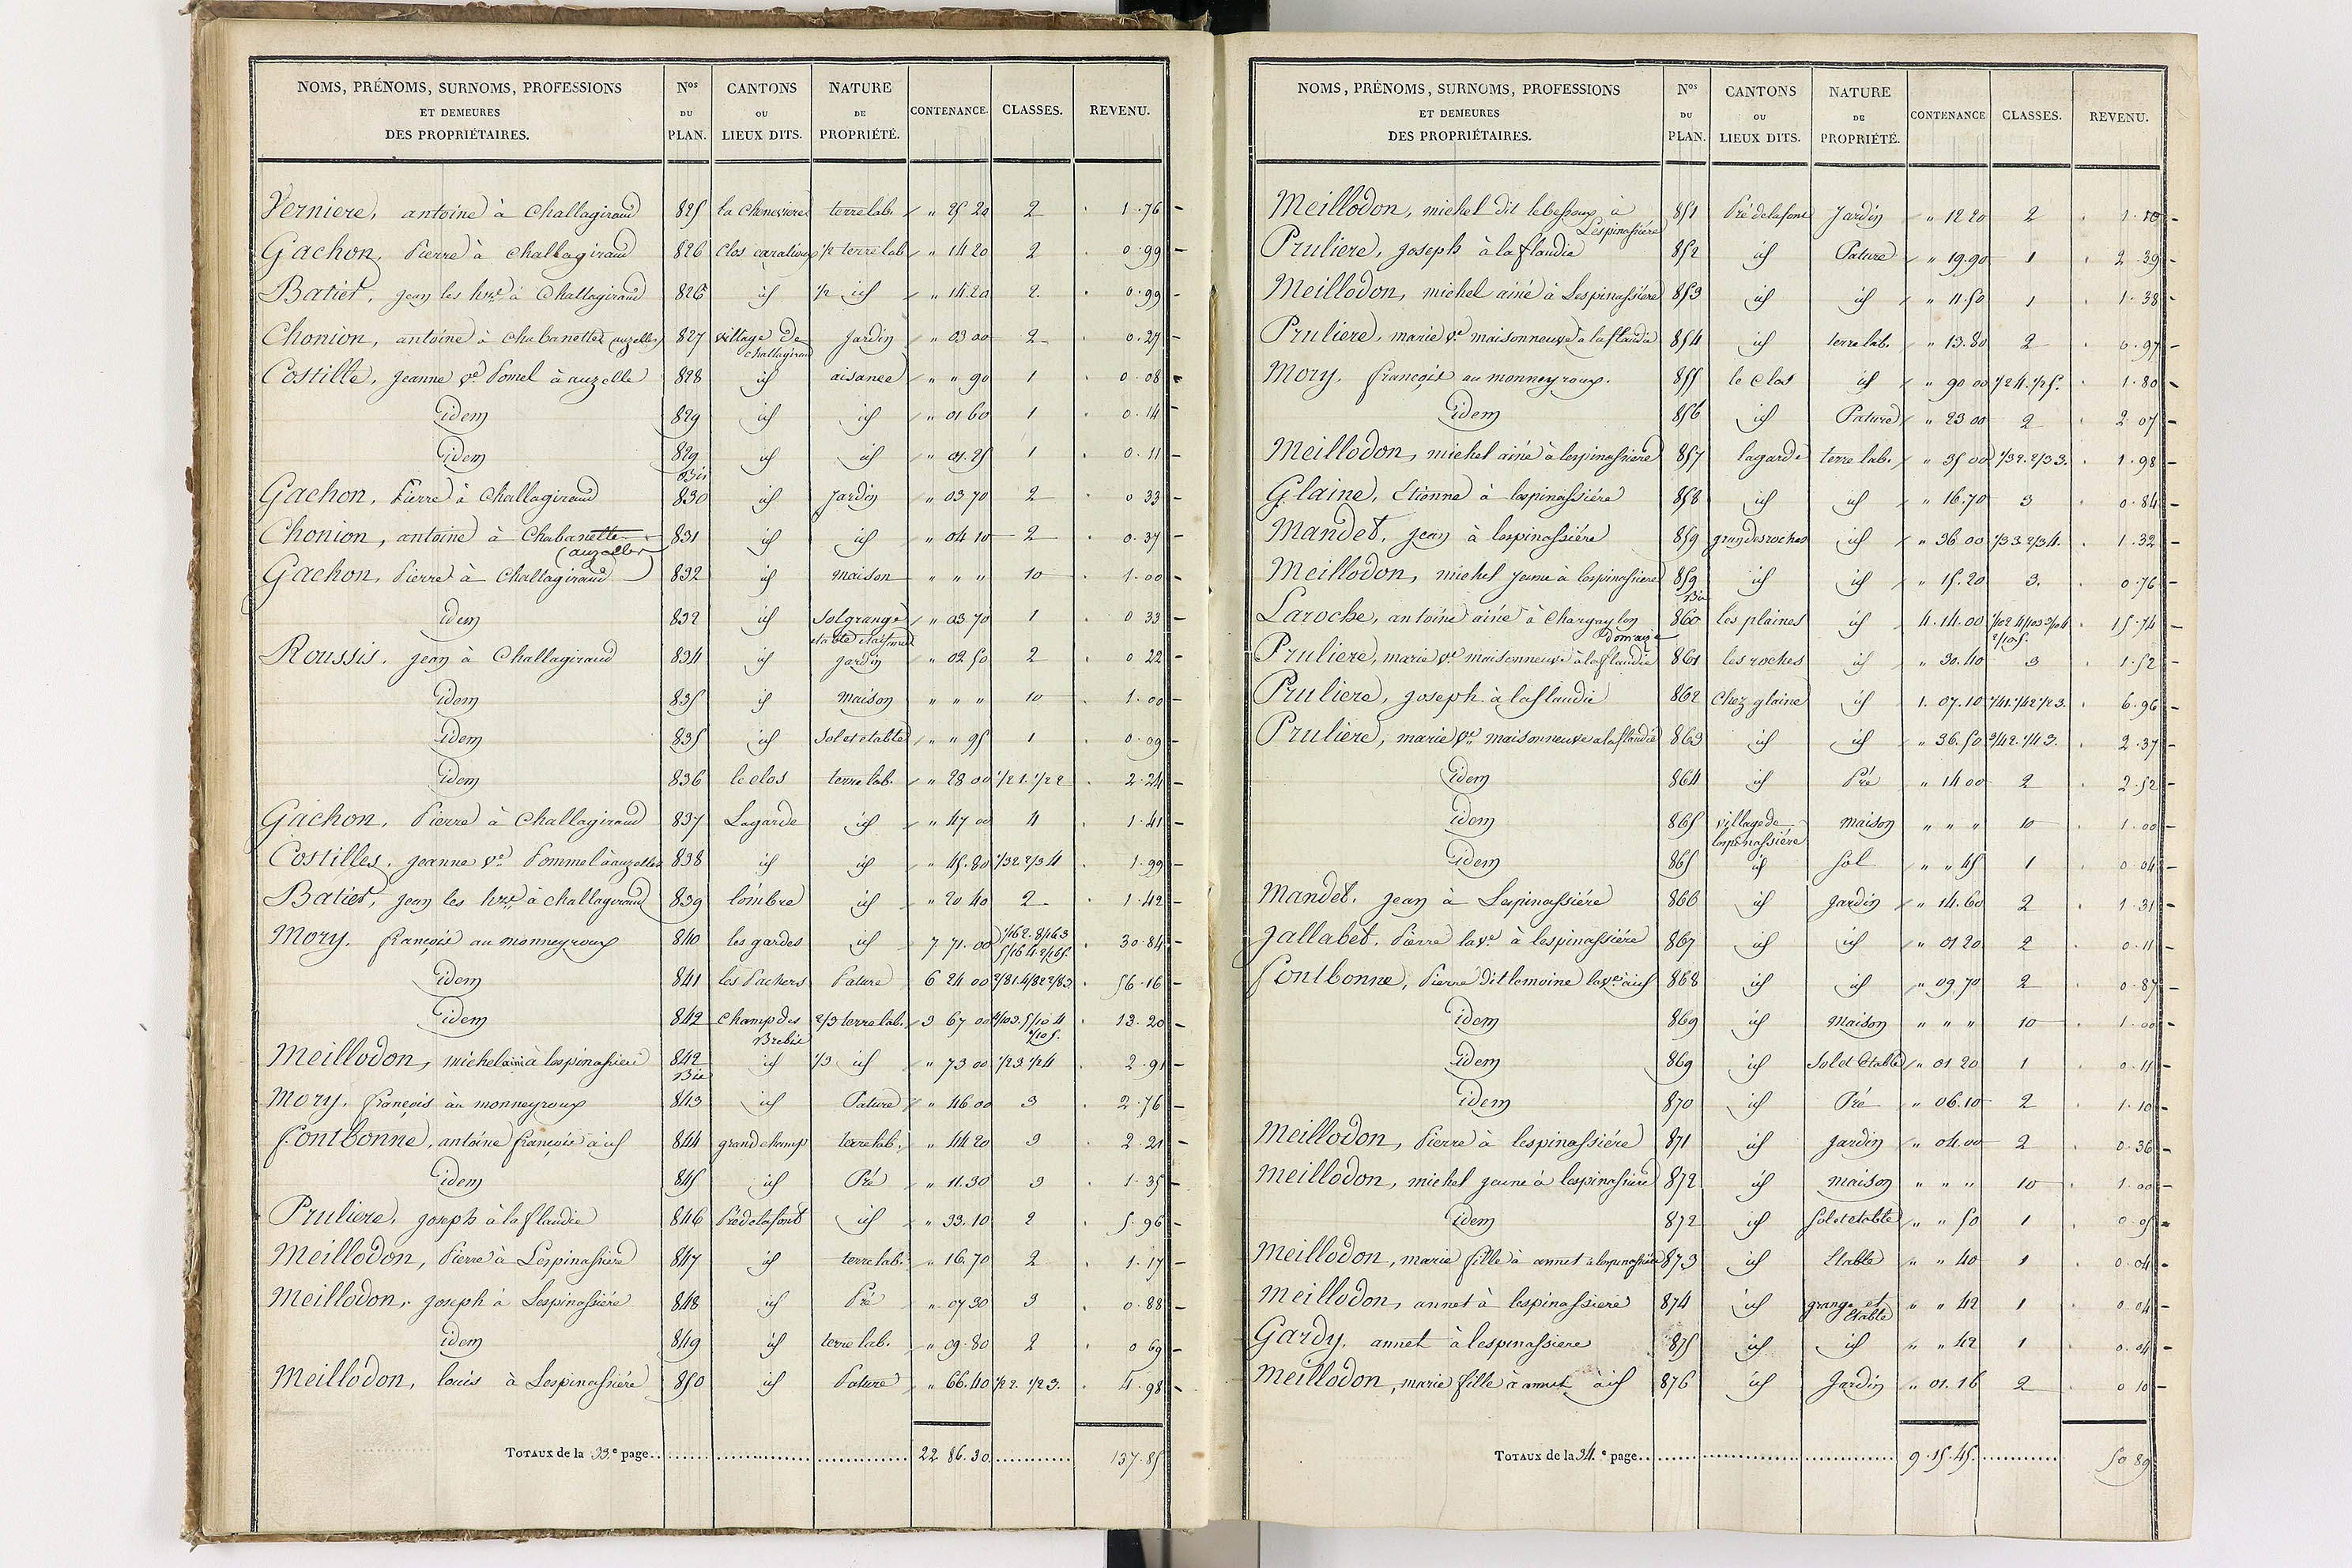 NOMS, PRÉNOMS, SURNOMS, PROFESSIONS ET DEMEURES DES PROPRIÉTAIRES. Nos DU PLAN. CANTONS OU LIEUX DITS. NATURE DE PROPRIÉTÉ. CONTENANCE. CLASSES. REVENU.
Verniere, antoine à Challagiraud 825 la Cheneviere terre lab. " 25 20 2 1.76
Gachon, Pierre à Challagiraud 826 Clos 1/2 terre lab " 14 20 2 0.99
Batiet, jean les hrs à Challagiraud 826 id 1/2 id " 14.20 2. 0.99
Chonion, antoine à Chabanettes auzelles 827 village de Challagiraud jardin " 03 00 2 0.27
Costille, jeanne ve Pomel à auzelle 828 id aisance " " 90 1 0.08
idem 829 id id " 01 60 1 0.14
idem 829 Bis id id " 01.25 1 0.11
Gachon, Pierre à Challagiraud 830 id jardin " 03 70 2 0 33
Chonion, antoine à Chabanette (auzelles) 831 id id " 04 10 2 0.37
Gachon, Pierre à Challagiraud 832 id maison " " " 10 1.00
idem 832 id Sol grange etable " 03 70 1 0 33
Roussis, jean à Challagiraud 834 id jardin " 02 50 2 0 22
idem 835 id maison " " " 10 1.00
idem 835 id Sol et etable " " 95 1 0.09
idem 836 le clos terre lab. " 28 00 1/2 1. 1/2 2 2.24
Gachon, Pierre à Challagiraud 837 Lagarde id " 47 00 4 1.41
Costilles, jeanne ve Pommel à auzelles 838 id id " 45.80 1/3 2 2/3 4 1.99
Batiet, jean les hrs à challagiraud 839 l'ombre id " 20 40 2 1.42
Mory, françois au monneyroux 840 les gardes id 7 71.00 1/16 2. 8/16 3 5/16 4. 2/16 5. 30.84
idem 841 les Pachers Pature 6 24 00 2/8 1. 4/8 2 2/8 3 56.16
idem 842 Champ des Brebis 2/3 terre lab. 3 67 00 13.20
Meillodon, michel ainé à lespinassiere 842 Bis id 1/3 id " 73 00 1/2 3 1/2 4 2.91
Mory, françois au monneyroux 843 id Pature " 46.00 3 2.76
Fontbonne, antoine françois à id 844 grand champ terre lab. " 44 20 3 2.21
idem 845 id Pré " 11.30 3 1.35
Pruliere, joseph à laflaudie 846 Pré delafont id " 33.10 2 5.96
Meillodon, Pierre à Lespinassiere 847 id terre lab. " 16.70 2 1.17
Meillodon, joseph à Lespinassiére 848 id Pré " 07 30 3 0.88
idem 849 id terre lab. " 09.80 2 0 69
Meillodon, louis à Lespinassiére 850 id Pature " 66.40 1/2 2. 1/2 3. 4.98
TOTAUX de la 33.e page 22 86.30. 137.85
NOMS, PRÉNOMS, SURNOMS, PROFESSIONS ET DEMEURES DES PROPRIÉTAIRES. Nos DU PLAN. CANTONS OU LIEUX DITS. NATURE DE PROPRIÉTÉ. CONTENANCE CLASSES. REVENU.
Meillodon, michel dit à Lespinassiére 851 Pré delafont Jardin " 12 20 2 1.10
Pruliere, joseph à laflaudie 852 id Pature " 19.90 1 2 39
Meillodon, michel ainé à Lespinassiére 853 id id " 11.50 1 1.38
Pruliere, marie ve maisonneuve à laflaudie 854 id terre lab. " 13.80 2 0.97
Mory, françois au monneyroux. 855 le Clos id " 90 00 1/2 4. 1/2 5. 1.80
idem 856 id Pature " 23 00 2 2 07
Meillodon, michel ainé à lespinassiere 857 lagarde terre lab. " 35 00 1/3 2. 2/3 3. 1.98
Glaine, Etienne à lespinassiére 858 id id " 16.70 3 0.84
Mandet, jean à lespinassiére 859 grandes roches id " 36 00 1/3 3 2/3 4. 1.32
Meillodon, michel jeune à lespinassiere 859 Bis id id " 15.20 3. 0.76
Laroche, antoine ainé à domaize 860 les plaines id 4.14.00 15.74
Pruliere, marie ve maisonneuve à laflaudie 861 les roches id " 30.40 3 1.52
Pruliere, joseph à laflaudie 862 Chez glaine id 1. 07.10 1/4 1. 1/4 2 1/2 3. 6.96
Pruliere, marie ve maisonneuve à laflaudie 863 id id " 36.50 3/4 2. 1/4 3. 2.37
idem 864 id Pré " 14 00 2 2.52
idem 865 village de lespinassiére maison " " " 10 1.00
idem 865 id sol " " 45 1 0 04
Mandet, jean à Lespinassiére 866 id jardin " 14.60 2 1 31
Jallabet, Pierre la ve à lespinassiére 867 id id " 01 20 2 0.11
Fontbonne, Pierre dit lemoine la ve à id 868 id id " 09.70 2 0.87
idem 869 id Maison " " " 10 1.00
idem 869 id Sol et Etable " 01 20 1 0.11
idem 870 id Pré " 06.10 2 1.10
Meillodon, Pierre à lespinassiére 871 id jardin " 04.00 2 0.36
Meillodon, michel jeune à lespinassiere 872 id maison " " " 10 1.00
idem 872 id sol et etable " " 50 1 0.05
Meillodon, marie fille à annet à lespinassiére 873 id Etable " " 40 1 0.04
Meillodon, annet à lespinassiere 874 id grange et Etable " " 42 1 0.04
Gardy, annet à lespinassiere 875 id id " " 42 1 0.04
Meillodon, marie fille à annet à id 876 id Jardin " 01.16 2 0 10
TOTAUX de la 34.e page 9.15.45. 50 89